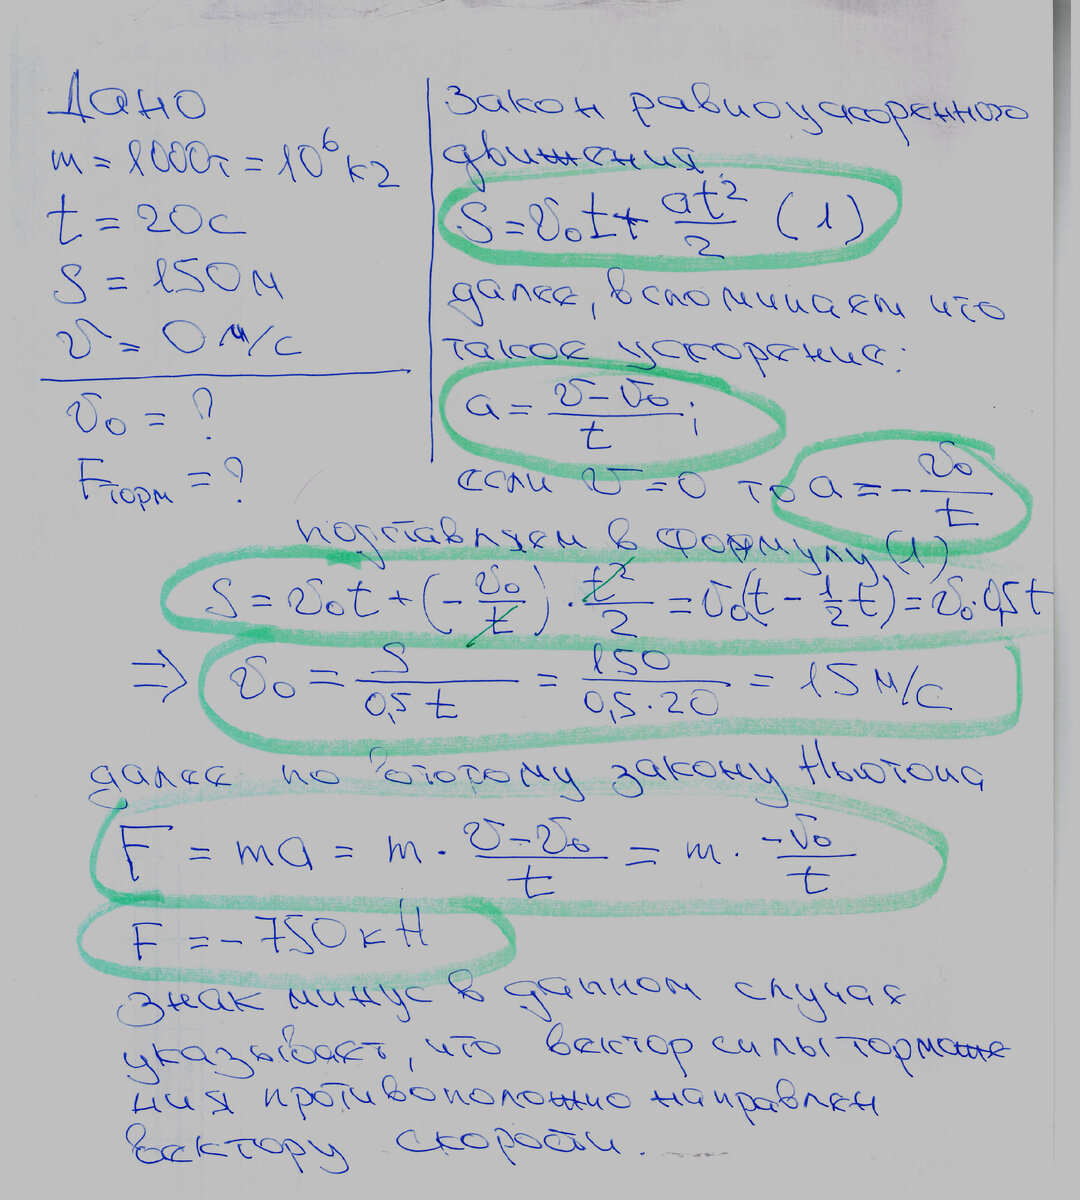 Дано
m = 1000т = 10⁶ кг
t = 20с
S = 150м
v = 0 м/с
v₀ = ?
Fторм = ?
Закон равноускоренного
движения
S = v₀t + at²/2 (1)
далее, вспоминаем что
такое ускорение:
a = (v - v₀)/t ;
если v = 0 то a = - v₀/t
подставляем в формулу (1)
S = v₀t + (- v₀/t) · t²/2 = v₀(t - 1/2 t) = v₀ · 0,5t
⇒ v₀ = S/(0,5 t) = 150/(0,5 · 20) = 15 м/с
далее по второму закону Ньютона
F = ma = m · (v - v₀)/t = m · (-v₀)/t
F = - 750 кН
знак минус в данном случае
указывает, что вектор силы торможе
ния противоположно направлен
вектору скорости.